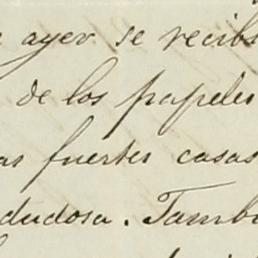 ayer se recib
de los papeles
as fuertes casas
dudosa. Tamb